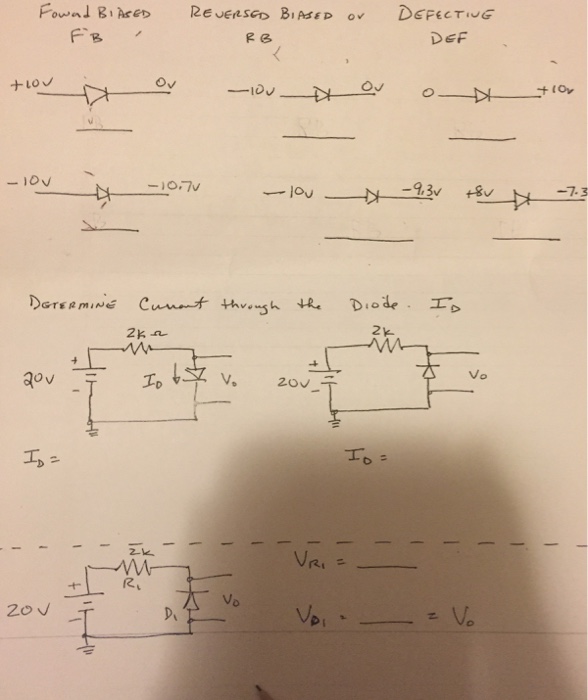 Foward BIASED REVERSED BIASED or DEFECTIVE
FB RB DEF
+10V 0v -10v 0v 0 +10v
-10V -10.7v -10v -9.3v +8v -7.3
DETERMINE Current through the Diode. ID
2KΩ 2k
20V + - ID Vo 20V + - Vo
ID = ID =
2k
R1
20V + - D1 Vo
VR1 = ____
VD1 = ____ = Vo